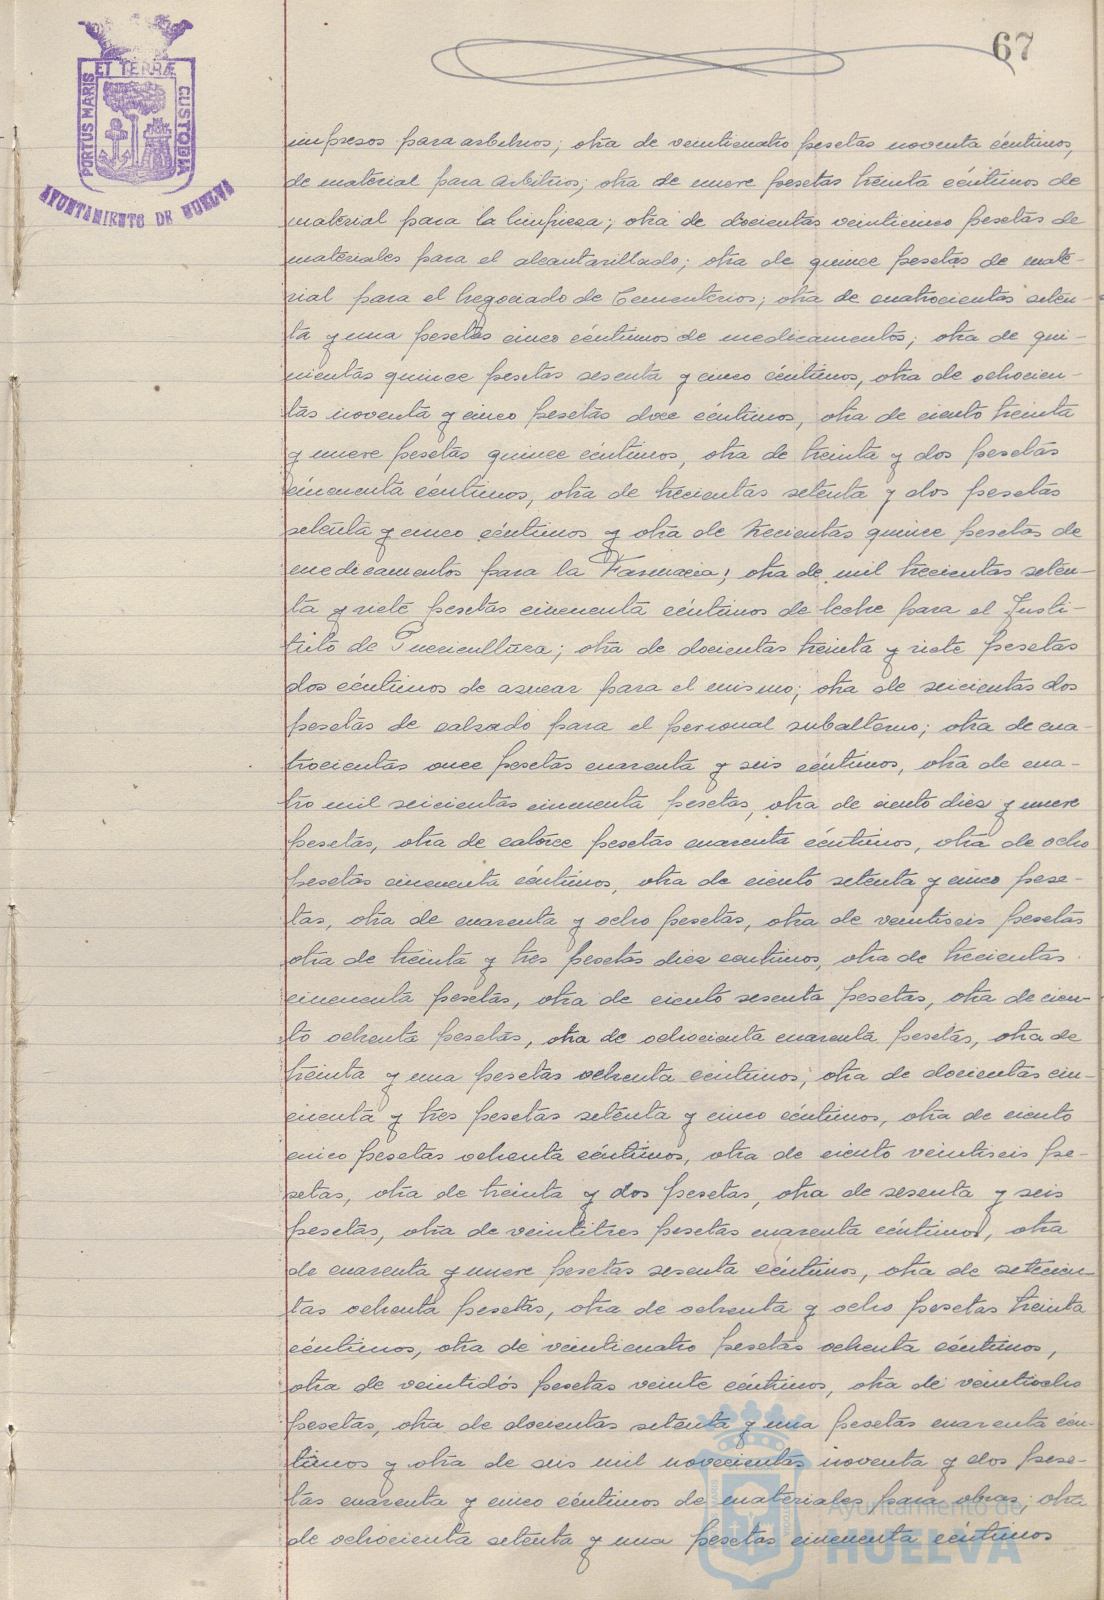 67
PORTUS MARIS ET TERRÆ CUSTODIA
AYUNTAMIENTO DE HUELVA
impresos para arbitrios; otra de veinticuatro pesetas noventa céntimos,
de material para arbitrios; otra de nueve pesetas treinta céntimos de
material para la limpieza; otra de docientas veinticinco pesetas de
materiales para el alcantarillado; otra de quince pesetas de mate-
rial para el Negociado de Cementerios; otra de cuatrocientas seten-
ta y una pesetas cinco céntimos de medicamentos; otra de qui-
nientas quince pesetas sesenta y cinco céntimos, otra de ochocien-
tas noventa y cinco pesetas doce céntimos, otra de ciento treinta
y nueve pesetas quince céntimos, otra de treinta y dos pesetas
cincuenta céntimos, otra de trecientas setenta y dos pesetas
setenta y cinco céntimos y otra de trecientas quince pesetas de
medicamentos para la Farmacia; otra de mil trecientas seten-
ta y siete pesetas cincuenta céntimos de leche para el Insti-
tuto de Puericultura; otra de docientas treinta y siete pesetas
dos céntimos de azucar para el mismo; otra de seicientas dos
pesetas de calzado para el personal subalterno; otra de cua-
trocientas once pesetas cuarenta y seis céntimos, otra de cua-
tro mil seicientas cincuenta pesetas, otra de ciento diez y nueve
pesetas, otra de catorce pesetas cuarenta céntimos, otra de ocho
pesetas cincuenta céntimos, otra de ciento setenta y cinco pese-
tas, otra de cuarenta y ocho pesetas, otra de veintiseis pesetas
otra de treinta y tres pesetas diez centimos, otra de trecientas
cincuenta pesetas, otra de ciento sesenta pesetas, otra de cien-
to ochenta pesetas, otra de ochocienta cuarenta pesetas, otra de
treinta y una pesetas ochenta centimos, otra de docientas cin-
cuenta y tres pesetas setenta y cinco céntimos, otra de ciento
cinco pesetas ochenta céntimos, otra de ciento veintiseis pe-
setas, otra de treinta y dos pesetas, otra de sesenta y seis
pesetas, otra de veintitres pesetas cuarenta céntimos, otra
de cuarenta y nueve pesetas sesenta céntimos, otra de setecien-
tas ochenta pesetas, otra de ochenta y ocho pesetas treinta
céntimos, otra de veinticuatro pesetas ochenta céntimos,
otra de veintidós pesetas veinte céntimos, otra de veintiocho
pesetas, otra de docientas setenta y una pesetas cuarenta cén-
timos y otra de seis mil novecientas noventa y dos pese-
tas cuarenta y cinco céntimos de materiales para obras; otra
de ochocienta setenta y una pesetas cincuenta céntimos
Ayuntamiento de
HUELVA